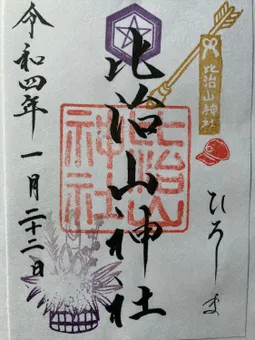 比治山神社
ひろしま
比治山神社
比治山神社
令和四年 一月二十二日